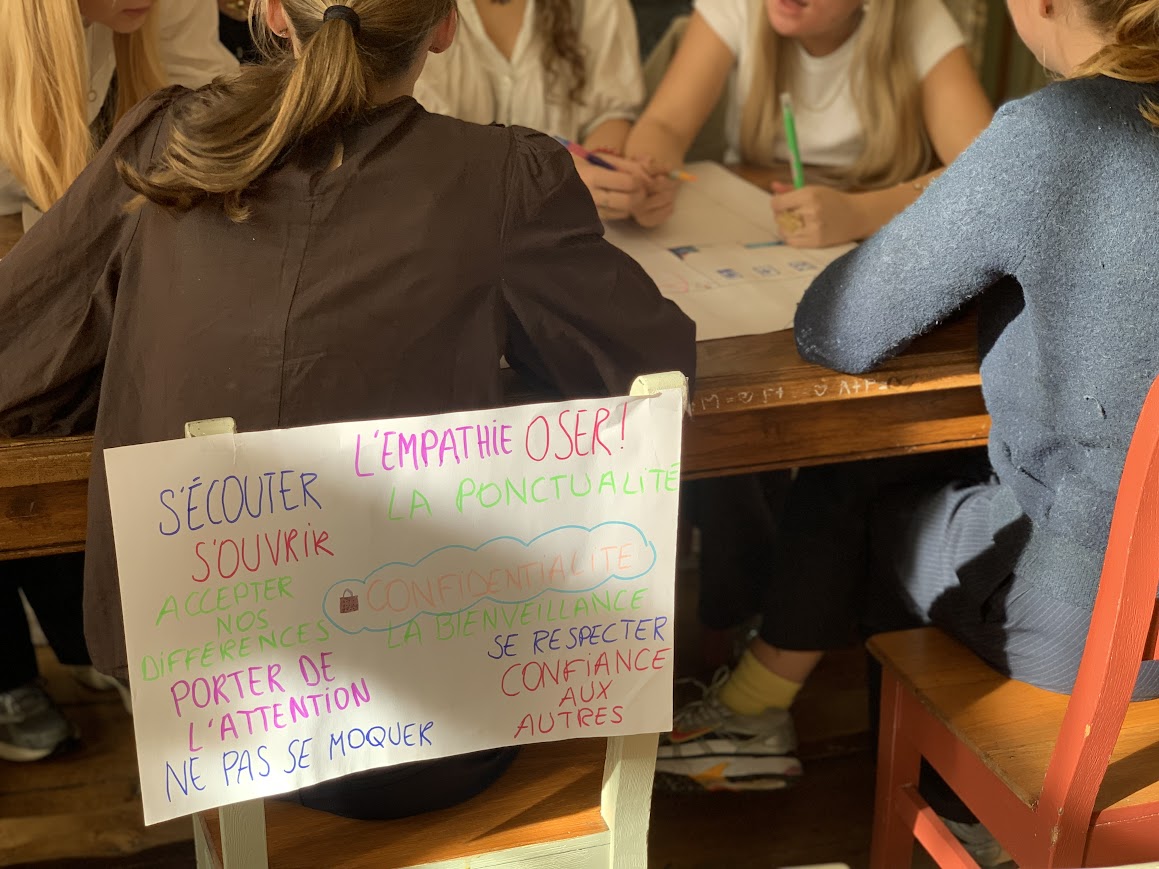 L'EMPATHIE OSER!
S'ÉCOUTER
LA PONCTUALITÉ
S'OUVRIR
CONFIDENTIALITE
ACCEPTER
NOS
DIFFÉRENCES
LA BIENVEILLANCE
SE RESPECTER
PORTER DE
L'ATTENTION
CONFIANCE
AUX
AUTRES
NE PAS SE MOQUER